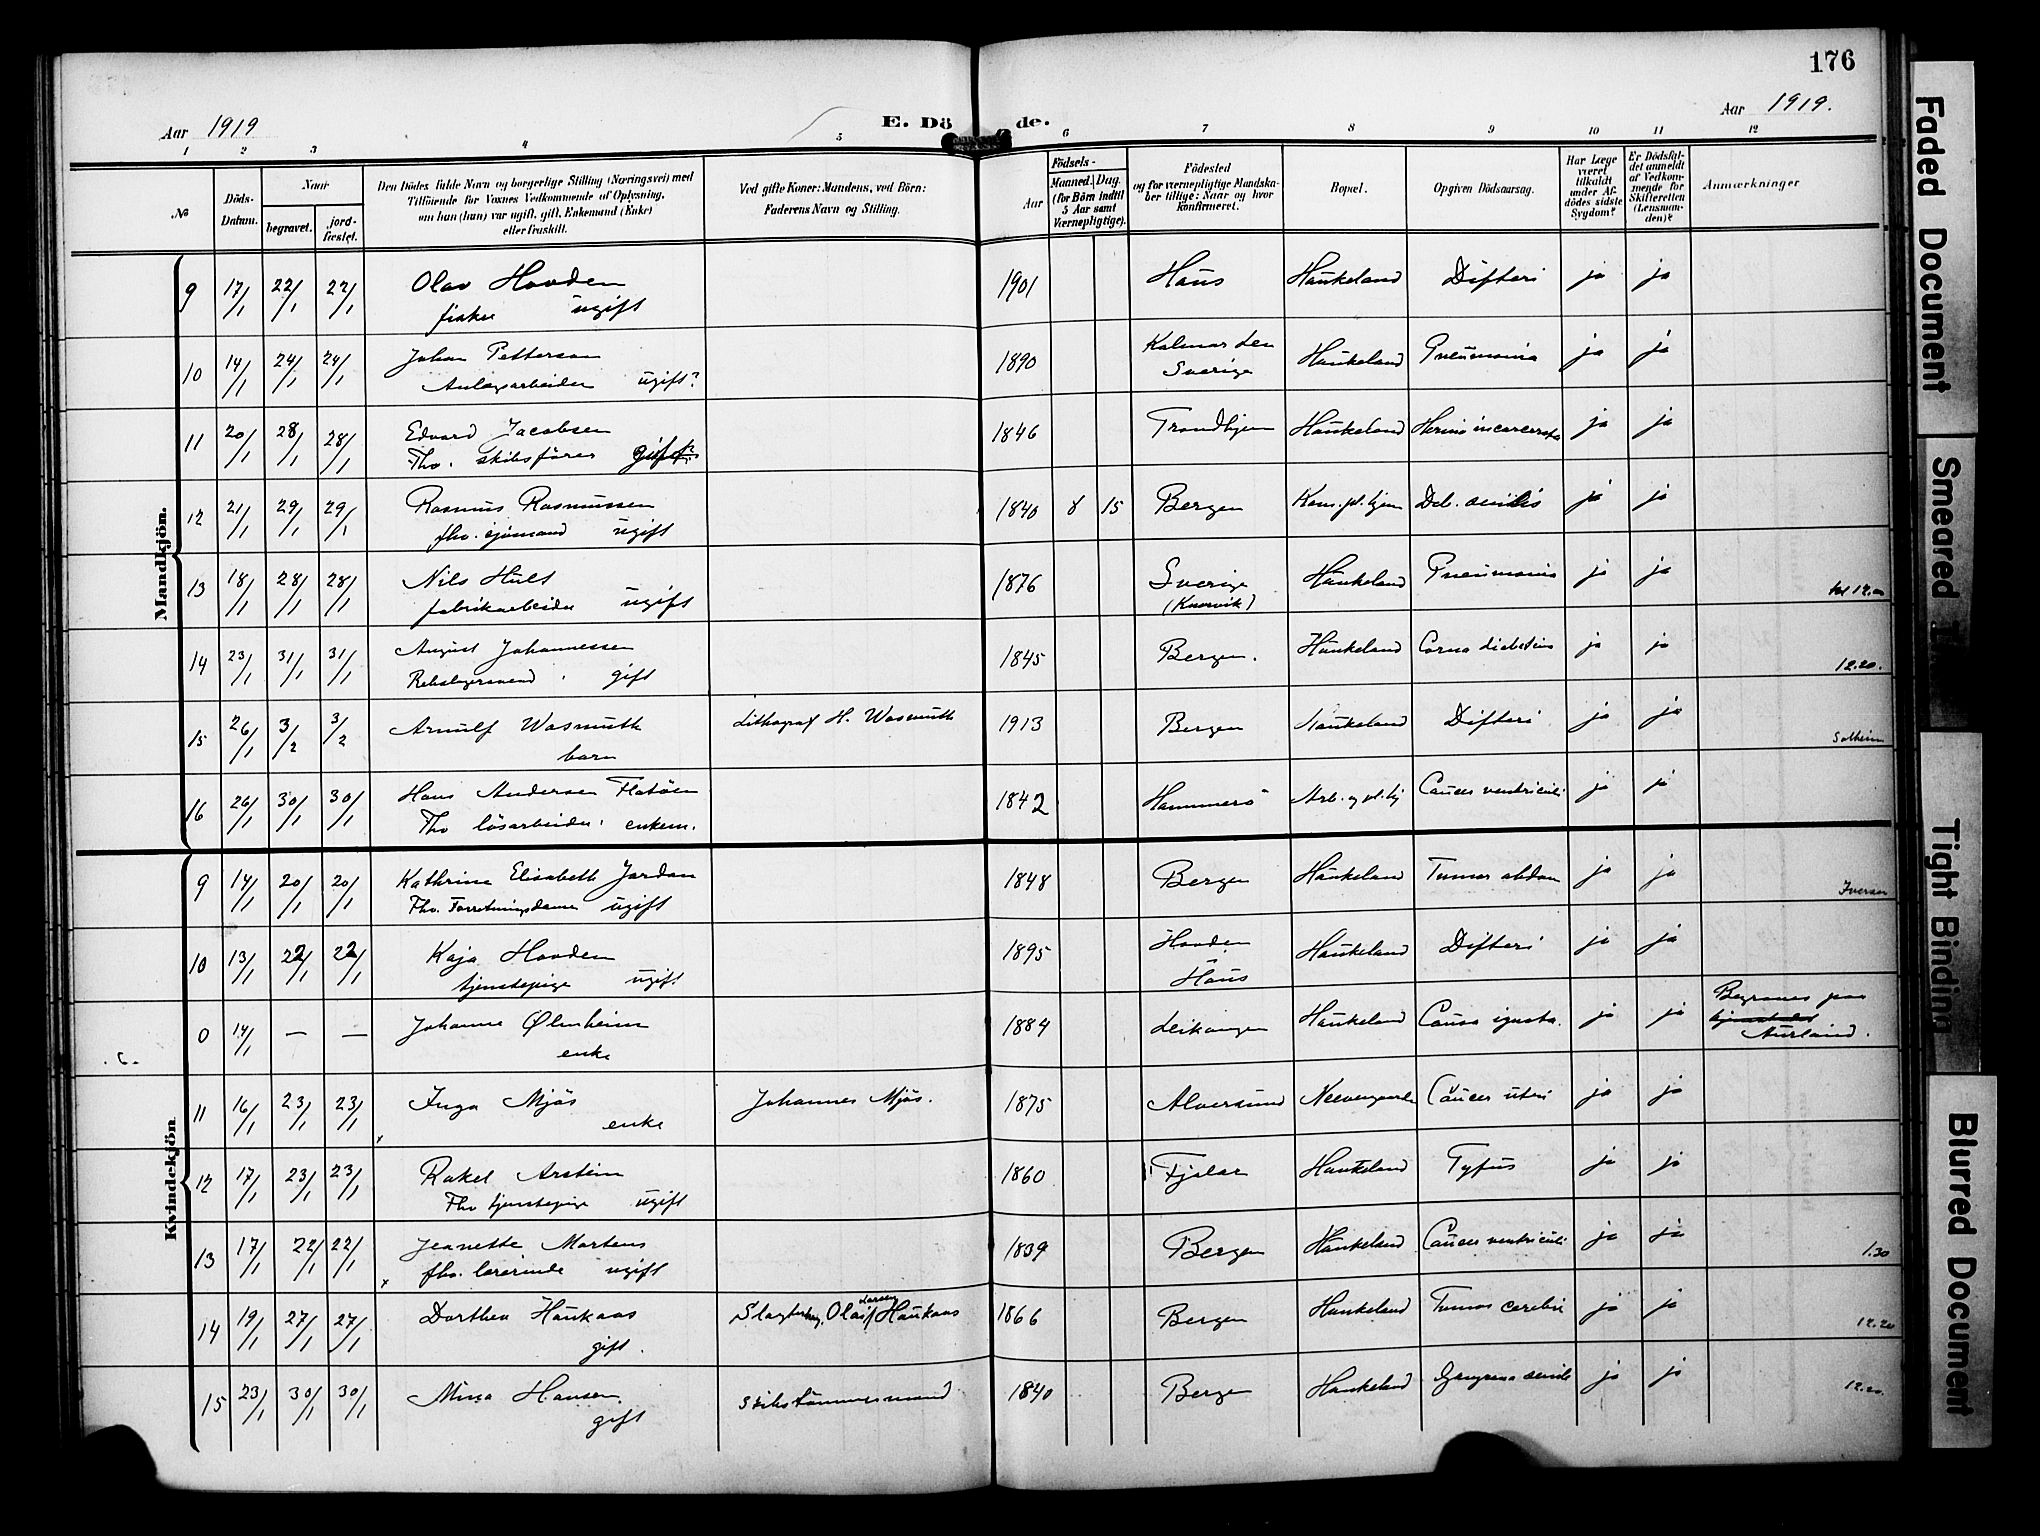 176
Aar 1919
E. Döde.
Aar 1919.
1 2 3 4 5 6 7 8 9 10 11 12
№
Döds-Datum.
Naar
begravet.
jord-fæstet.
Den Dödes fulde Navn og borgerlige Stilling (Næringsvei) med
Tilföiende for Voxnes Vedkommende af Oplysning,
om han (hun) var ugift, gift, Enkemand (Enke)
eller fraskilt.
Ved gifte Koner: Mandens, ved Börn:
Faderens Navn og Stilling.
Födsels-
Aar
Maaned. Dag.
(for Börn indtil
5 Aar samt
Værnepligtige).
Födested
og for værnepligtige Mandska-
ber tillige: Naar og hvor
konfirmeret.
Bopæl.
Opgiven Dödsaarsag.
Har Læge
været
tilkaldt
under Af-
dödes sidste
Sygdom?
Er Dödsfal-
det anmeldt
af Vedkom-
mende for
Skifteretten
(Lensman-
den)?
Anmærkninger
Mandkjön.
9 17/1 22/1 22/1 Olav Hovden 1901 Haus Haukeland Difteri ja ja
fisker ugift
10 14/1 24/1 24/1 Johan Petterson 1890 Kalmar len Haukeland Pneumonia ja ja
Anlægsarbeider ugift? Sverige
11 20/1 28/1 28/1 Edvard Jacobsen 1846 Trondhjem Haukeland Hernia incarcerata ja ja
Fhv. skibsförer gift?
12 21/1 29/1 29/1 Rasmus Rasmussen 1840 8 15 Bergen Kom. pl. hjem Deb. senilis ja ja
fhv. sjömand ugift
13 18/1 28/1 28/1 Nils Hult 1876 Sverige Haukeland Pneumonia ja ja
fabrikarbeider ugift kl 12
14 23/1 31/1 31/1 August Johannessen 1845 Bergen. Haukeland Coma diabeticus ja ja
Rebslagersvend gift 12.20.
15 26/1 3/2 3/2 Arnulf Wasmuth Lithograf H. Wasmuth 1913 Bergen Haukeland Difteri ja ja
barn Solheim
16 26/1 30/1 30/1 Hans Andersen Flatöen 1842 Hammerö Arb. og pl. hj Cancer ventriculi ja ja
Fhv lösarbeider enkem.
Kvindekjön
9 14/1 20/1 20/1 Kathrine Elisabeth Jordan 1848 Bergen Haukeland Tumor abdom ja ja
Fhv. Forretningsdame ugift Iversen
10 13/1 22/1 22/1 Kaja Hovden 1895 Hovden Haukeland Difteri ja ja
tjenestepige ugift Haus
0 14/1 — — Johanne Ølmheim 1884 Leikanger Haukeland ja ja Begraves paa
enke Aurland.
. C .
11 16/1 23/1 23/1 Inga Mjös Johannes Mjös. 1875 Alversund Neevengaarden Cancer uteri ja ja
enke
12 17/1 23/1 23/1 Rakel Arstein 1860 Fjelar Haukeland Tyfus ja ja
Fhv tjenestepige ugift
13 17/1 22/1 22/1 Jeanette Mortens 1839 Bergen Haukeland Cancer ventriculi ja ja
fhv. lærerinde ugift 1.30
14 19/1 27/1 27/1 Dorthea Haukaas Olai Larsen Haukaas 1866 Bergen Haukeland Tumor cerebri ja ja
gift. 12.20
15 23/1 30/1 30/1 Mina Hansen skibstömmermand 1840 Bergen Haukeland Gangræna senilis ja ja
gift 12.20.
Faded Document
Smeared
Tight Binding
Blurred Document